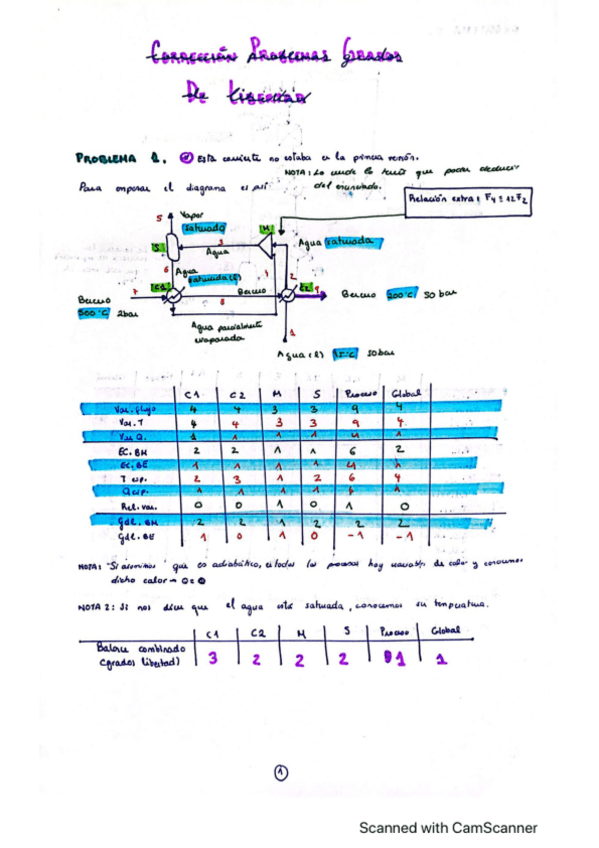 CORRECCIÓN PROBLEMAS Grados
De Libertad
PROBLEMA 1. Esta corriente no estaba en la primera versión.
NOTA: Lo unde lo tenía que poder deducir
Para empezar el diagrama es así del enunciado.
Relación extra: F4 = 12F2
5 Vapor
saturado M
S 3 Agua saturada
Agua
6 Agua
saturada (l) 4 2
7 C1 Benceno C2 9
Benceno 8 Benceno 200°C 30 bar
500°C 2bar
Agua parcialmente
evaporada 1
Agua (l) 15°C 50bar
C1 C2 M S Proceso Global
Var. Flujo 4 4 3 3 9 4
Var. T 4 4 3 3 9 4
Var Q. 1 1 1 1 4 1
EC. BM 2 2 1 1 6 2
EC. BE 1 1 1 1 4 1
T esp. 2 3 1 2 6 4
Q esp. 1 1 1 1 4 1
Rel. var. 0 0 1 0 1 0
Gdl. BM 2 2 1 2 2 2
Gdl. BE 1 0 1 0 -1 -1
NOTA: "Si asumimos" que es adiabático, en todos los procesos hay variable de calor y conocemos
dicho calor → Q = 0
NOTA 2: Si nos dicen que el agua está saturada, conocemos su temperatura.
C1 C2 M S Proceso Global
Balance combinado
(grados libertad) 3 2 2 2 1 1
1
Scanned with CamScanner